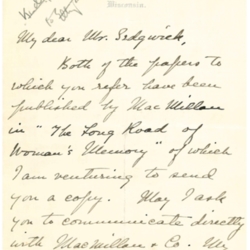 Wisconsin.
My dear Mr. Sedgwick,
Both of the papers to
which you refer have been
published by MacMillan
in "The Long Road of
Woman's Memory" of which
I am venturing to send
you a copy. May I ask
you to communicate directly
with MacMillan & Co. My